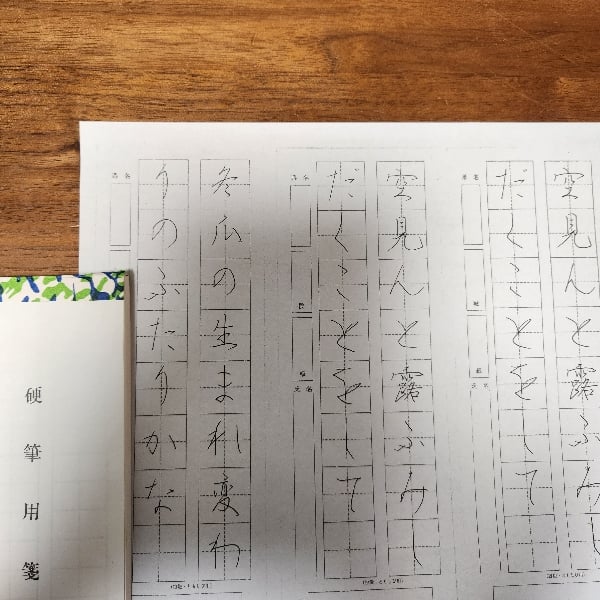 空見んと露ふみし
だくことをして
空見んと露ふみし
だくことをして
氏名
冬瓜の生まれ変わ
りのふたりかな
硬筆用箋